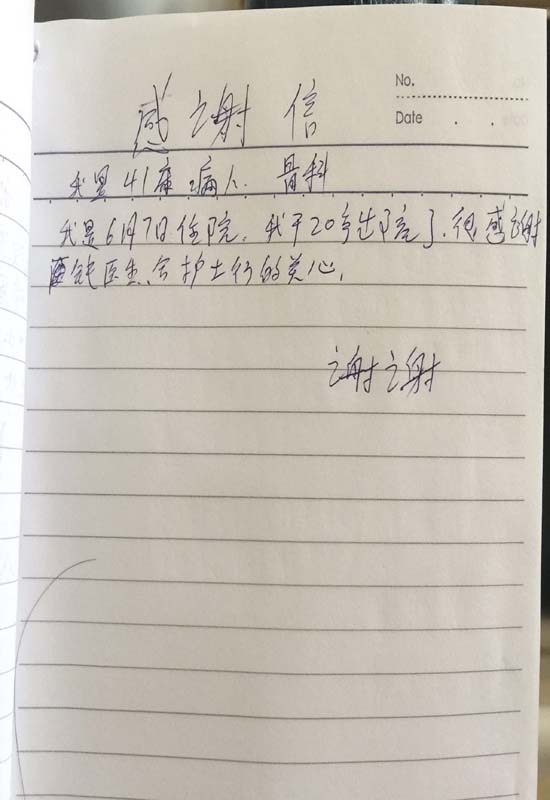 No.
Date . .
感谢信
我是41床病人. 骨科
我是6月7日住院。我于20号出院了.很感谢
钝医生.各护士们的关心.
谢谢